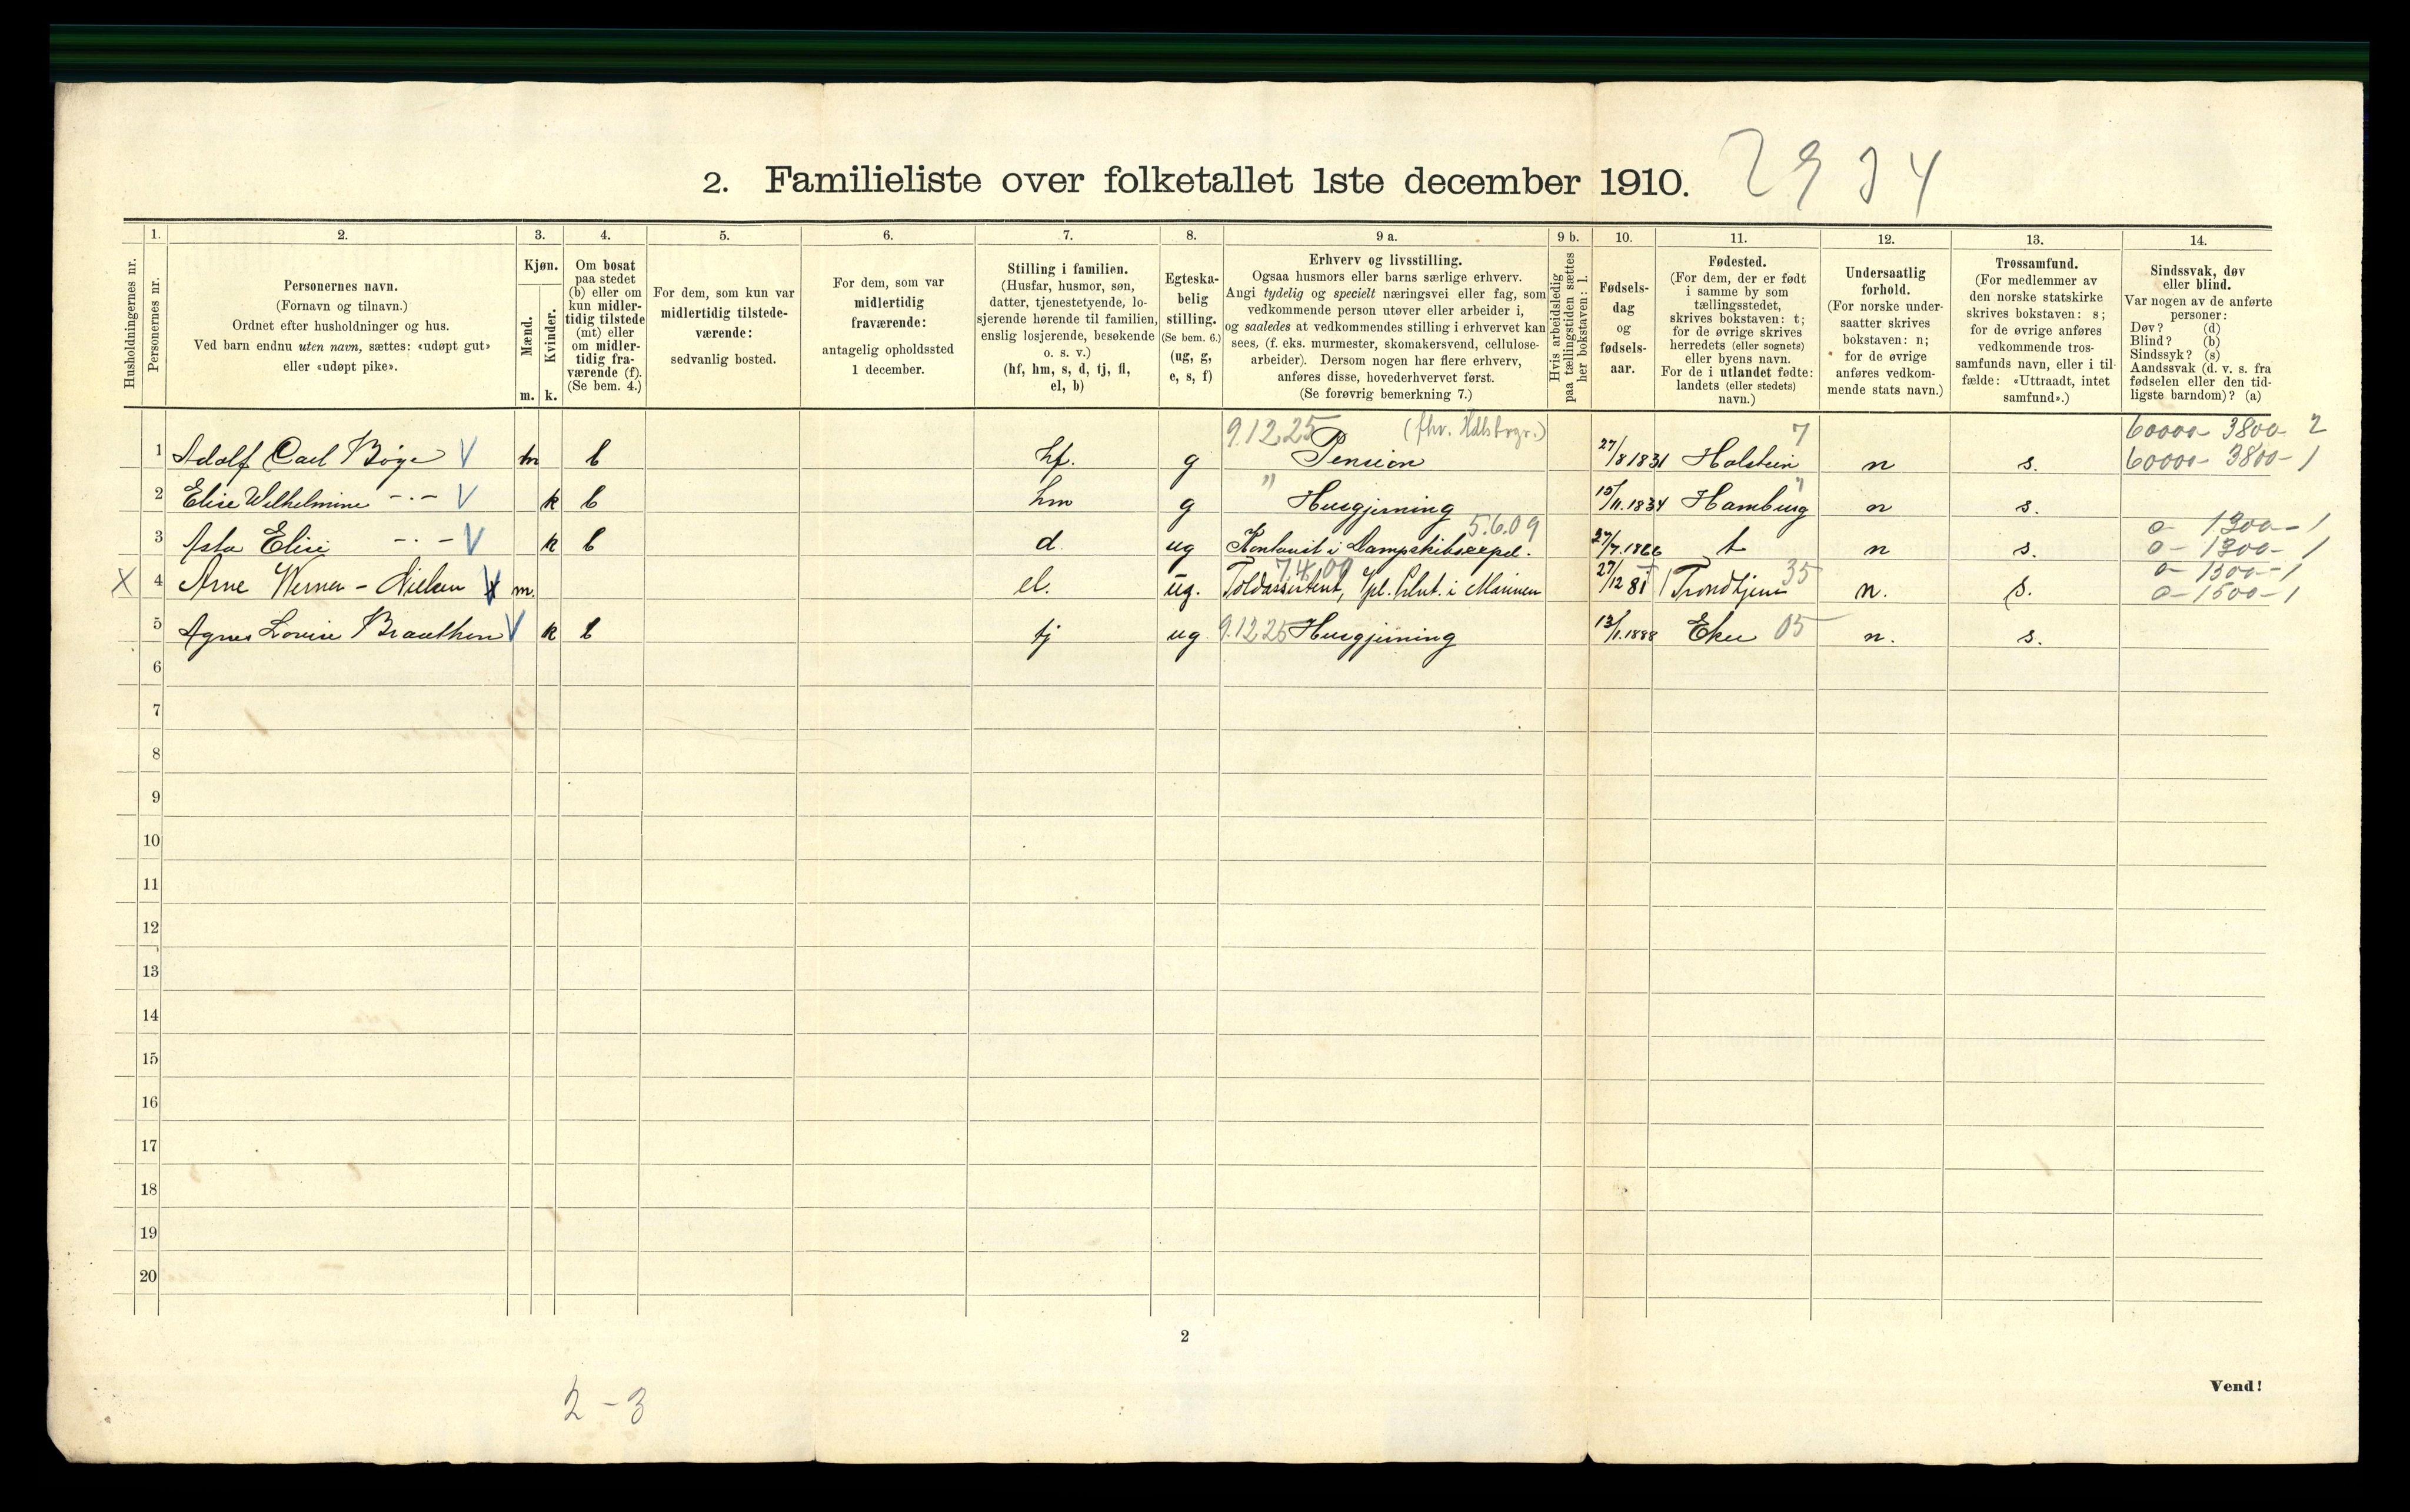 2. Familieliste over folketallet 1ste december 1910. 2934
Husholdningernes nr.
1.
Personernes nr.
2.
Personernes navn.
(Fornavn og tilnavn.)
Ordnet efter husholdninger og hus.
Ved barn endnu uten navn, sættes: «udøpt gut»
eller «udøpt pike».
3.
Kjøn.
Mænd.
Kvinder.
m. k.
4.
Om bosat
paa stedet
(b) eller om
kun midler-
tidig tilstede
(mt) eller
om midler-
tidig fra-
værende (f).
(Se bem. 4.)
5.
For dem, som kun var
midlertidig tilstede-
værende:
sedvanlig bosted.
6.
For dem, som var
midlertidig
fraværende:
antagelig opholdssted
1 december.
7.
Stilling i familien.
(Husfar, husmor, søn,
datter, tjenestetyende, lo-
sjerende hørende til familien,
enslig losjerende, besøkende
o. s. v.)
(hf, hm, s, d, tj, fl,
el, b)
8.
Egteska-
belig
stilling.
(Se bem. 6.)
(ug, g,
e, s, f)
9 a.
Erhverv og livsstilling.
Ogsaa husmors eller barns særlige erhverv.
Angi tydelig og specielt næringsvei eller fag, som
vedkommende person utøver eller arbeider i,
og saaledes at vedkommendes stilling i erhvervet kan
sees, (f. eks. murmester, skomakersvend, cellulose-
arbeider). Dersom nogen har flere erhverv,
anføres disse, hovederhvervet først.
(Se forøvrig bemerkning 7.)
9 b.
Hvis arbeidsledig
paa tællingstiden sættes
her bokstaven: l.
10.
Fødsels-
dag
og
fødsels-
aar.
11.
Fødested.
(For dem, der er født
i samme by som
tællingsstedet,
skrives bokstaven: t;
for de øvrige skrives
herredets (eller sognets)
eller byens navn.
For de i utlandet fødte:
landets (eller stedets)
navn.)
12.
Undersaatlig
forhold.
(For norske under-
saatter skrives
bokstaven: n;
for de øvrige
anføres vedkom-
mende stats navn.)
13.
Trossamfund.
(For medlemmer av
den norske statskirke
skrives bokstaven: s;
for de øvrige anføres
vedkommende tros-
samfunds navn, eller i til-
fælde: «Uttraadt, intet
samfund».)
14.
Sindssvak, døv
eller blind.
Var nogen av de anførte
personer:
Døv? (d)
Blind? (b)
Sindssyk? (s)
Aandssvak (d. v. s. fra
fødselen eller den tid-
ligste barndom)? (a)
9.12.25 (fhv. Hdlsbrgr.) 7 60000 - 3800 - 2
1 Adolf Carl Böge V m b hf. g Pension 27/8 1831 Holstein n s. 60000 - 3800 - 1
2 Elise Wilhelmine -·- V k b hm g " Husgjerning 15/11.1834 Hamburg " n s.
5.6.09 0 - 1300 - 1
3 Asta Elise -·- V k b d. ug Kontorist i Dampskibsexped. 27/7.1866 t n s. 0 - 1300 - 1
7.4.09 35 0 - 1500 - 1
X 4 Arne Werner - Nielsen V x m. el. ug. Toldassistent, i Marinen 27/12 81 Trondhjem n. s. 0 - 1500 - 1
5 Agnes Lovise Brauthen V k b tj ug 9.12.25 Husgjerning 13/1.1888 Eker 05 n. s.
6
7
8
9
10
11
12
13
14
15
16
17
18
19
20
2
Vend!
2 - 3